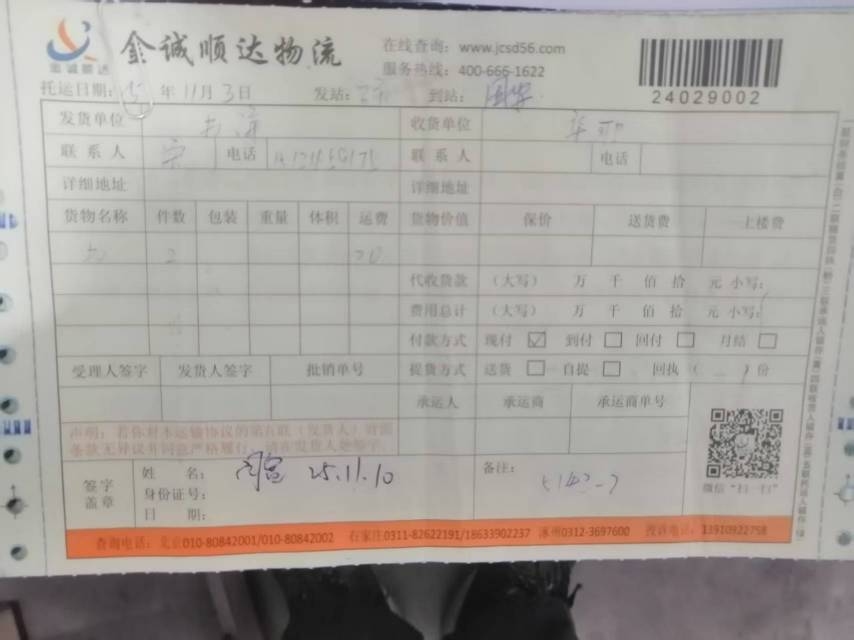 金诚顺达物流
在线查询：www.jcsd56.com
服务热线：400-666-1622
24029002
金诚顺达
托运日期： 年 11月 3日 发站： 到站：
发货单位 收货单位
联系人 电话 联系人 电话
详细地址 详细地址
货物名称 件数 包装 重量 体积 运费 货物价值 保价 送货费 上楼费
2 20
代收货款 （大写） 万 千 佰 拾 元 小写：
费用总计 （大写） 万 千 佰 拾 元 小写：
付款方式 现付 ☑ 到付 □ 回付 □ 月结 □
受理人签字 发货人签字 批销单号 提货方式 送货 □ 自提 □ 回执（ ）份
承运人 承运商 承运商单号
声明：若你对本运输协议的第五联（发货人）背面
条款无异议并同意严格履行，请在发货人处签字
签字
盖章
姓 名： 25.11.10
身份证号：
日 期：
备注： 5142-7
微信“扫一扫”
查询电话：北京010-80842001/010-80842002 石家庄0311-82622191/18633902237 涿州0312-3697600 投诉电话：13910922758